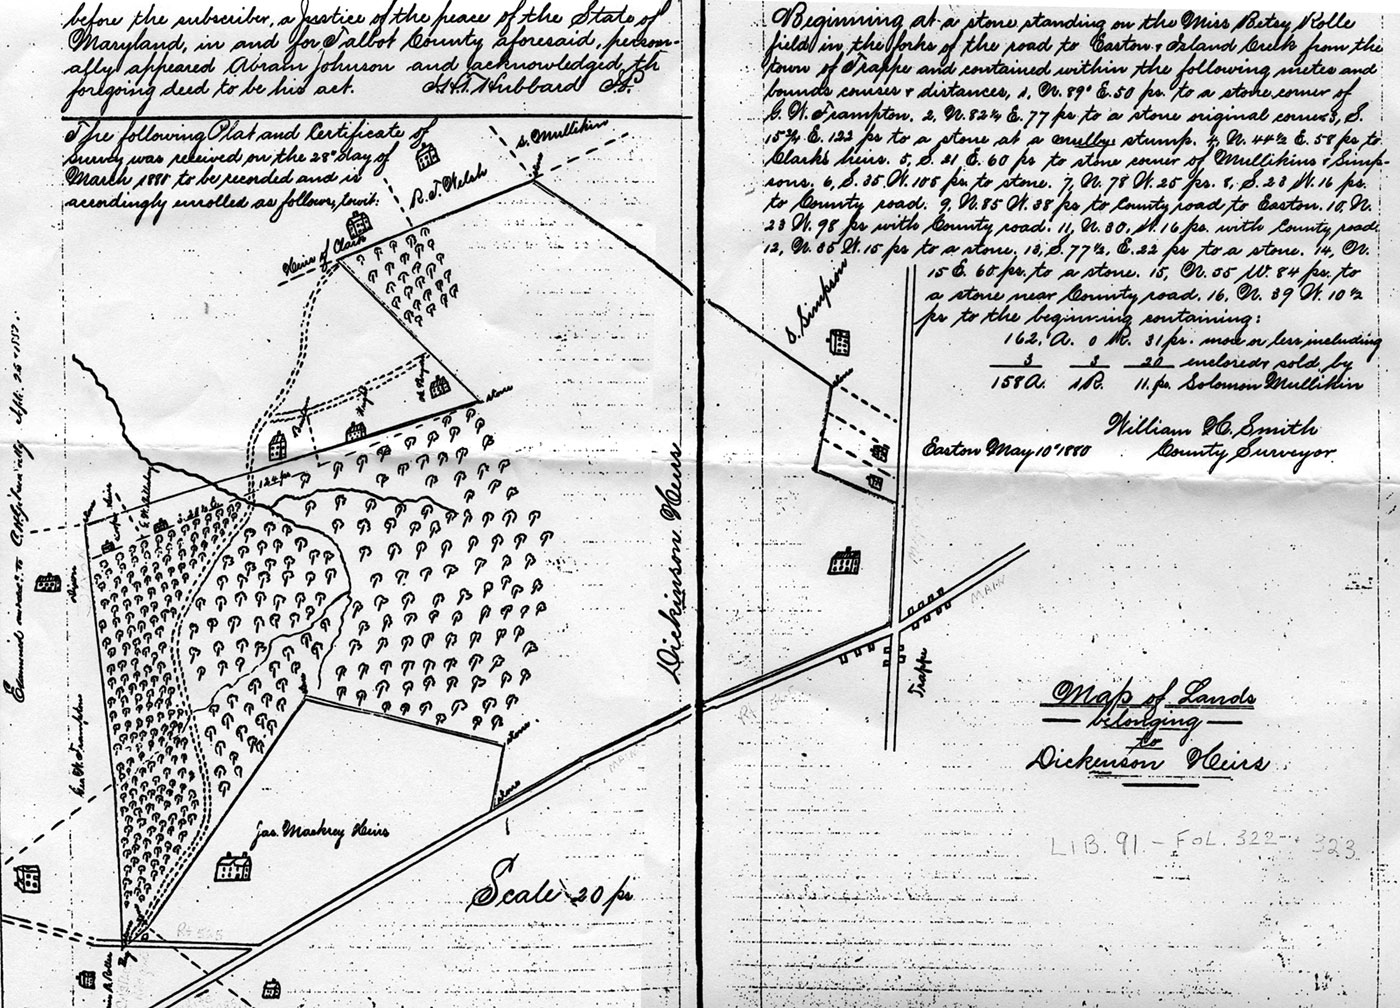 before the subscriber, a Justice of the peace of the State of
Maryland, in and for Talbot County aforesaid, person-
ally appeared Abram Johnson and acknowledged th
foregoing deed to be his act. Hubbard
The following Plat and Certificate of
survey was received on the 28th day of
March 1881 to be recorded and is
accordingly enrolled as follows, towit:
S. Mullikin
R. T. Welsh
Heirs of Clark
stone
124 ps
Dixon
Geo. W. Trampton
Jas. Mackrey Heirs
stone
stone
Scale 20 ps
Dickinson Heirs
Beginning at a stone standing on the Miss Betsy Rolle
field in the forks of the road to Easton & Island Creek from the
town of Trappe and contained within the following metes and
bounds courses & distances, 1, N. 89° E. 50 ps. to a stone corner of
G. W. Trampton. 2, N. 82 1/4 E. 77 ps to a stone original corner 3, S.
15 3/4 E. 122 ps to a stone at a stump. 4, N. 44 1/2 E. 58 ps to
Clarks heirs. 5, S. 21 E. 60 ps to stone corner of Mullikins & Simp-
sons. 6, S. 35 W. 105 ps. to stone. 7, N. 78 W. 25 ps. 8, S. 23 W. 16 ps.
to County road. 9, N. 85 W. 38 ps to County road to Easton. 10, N.
23 W. 98 ps with County road. 11, N. 30, W. 16 ps. with County road
12, N. 35 W. 15 ps to a stone. 13, S. 77 1/2, E. 22 ps to a stone. 14, N.
15 E. 60 ps. to a stone. 15, N. 55 W. 84 ps. to
a stone near County road. 16, N. 39 W. 10 1/2
ps to the beginning containing:
162. A. 0 R. 31 ps. more or less including
3 3 20 enclosed & sold by
158 A. 1 R. 11. ps. Solomon Mullikin
William H. Smith
Easton May 10th 1880 County Surveyor.
S. Simpson
stone
MAIN
Trappe
Map of Lands
belonging
to
Dickenson Heirs
LIB. 91. - FOL. 322 - 323